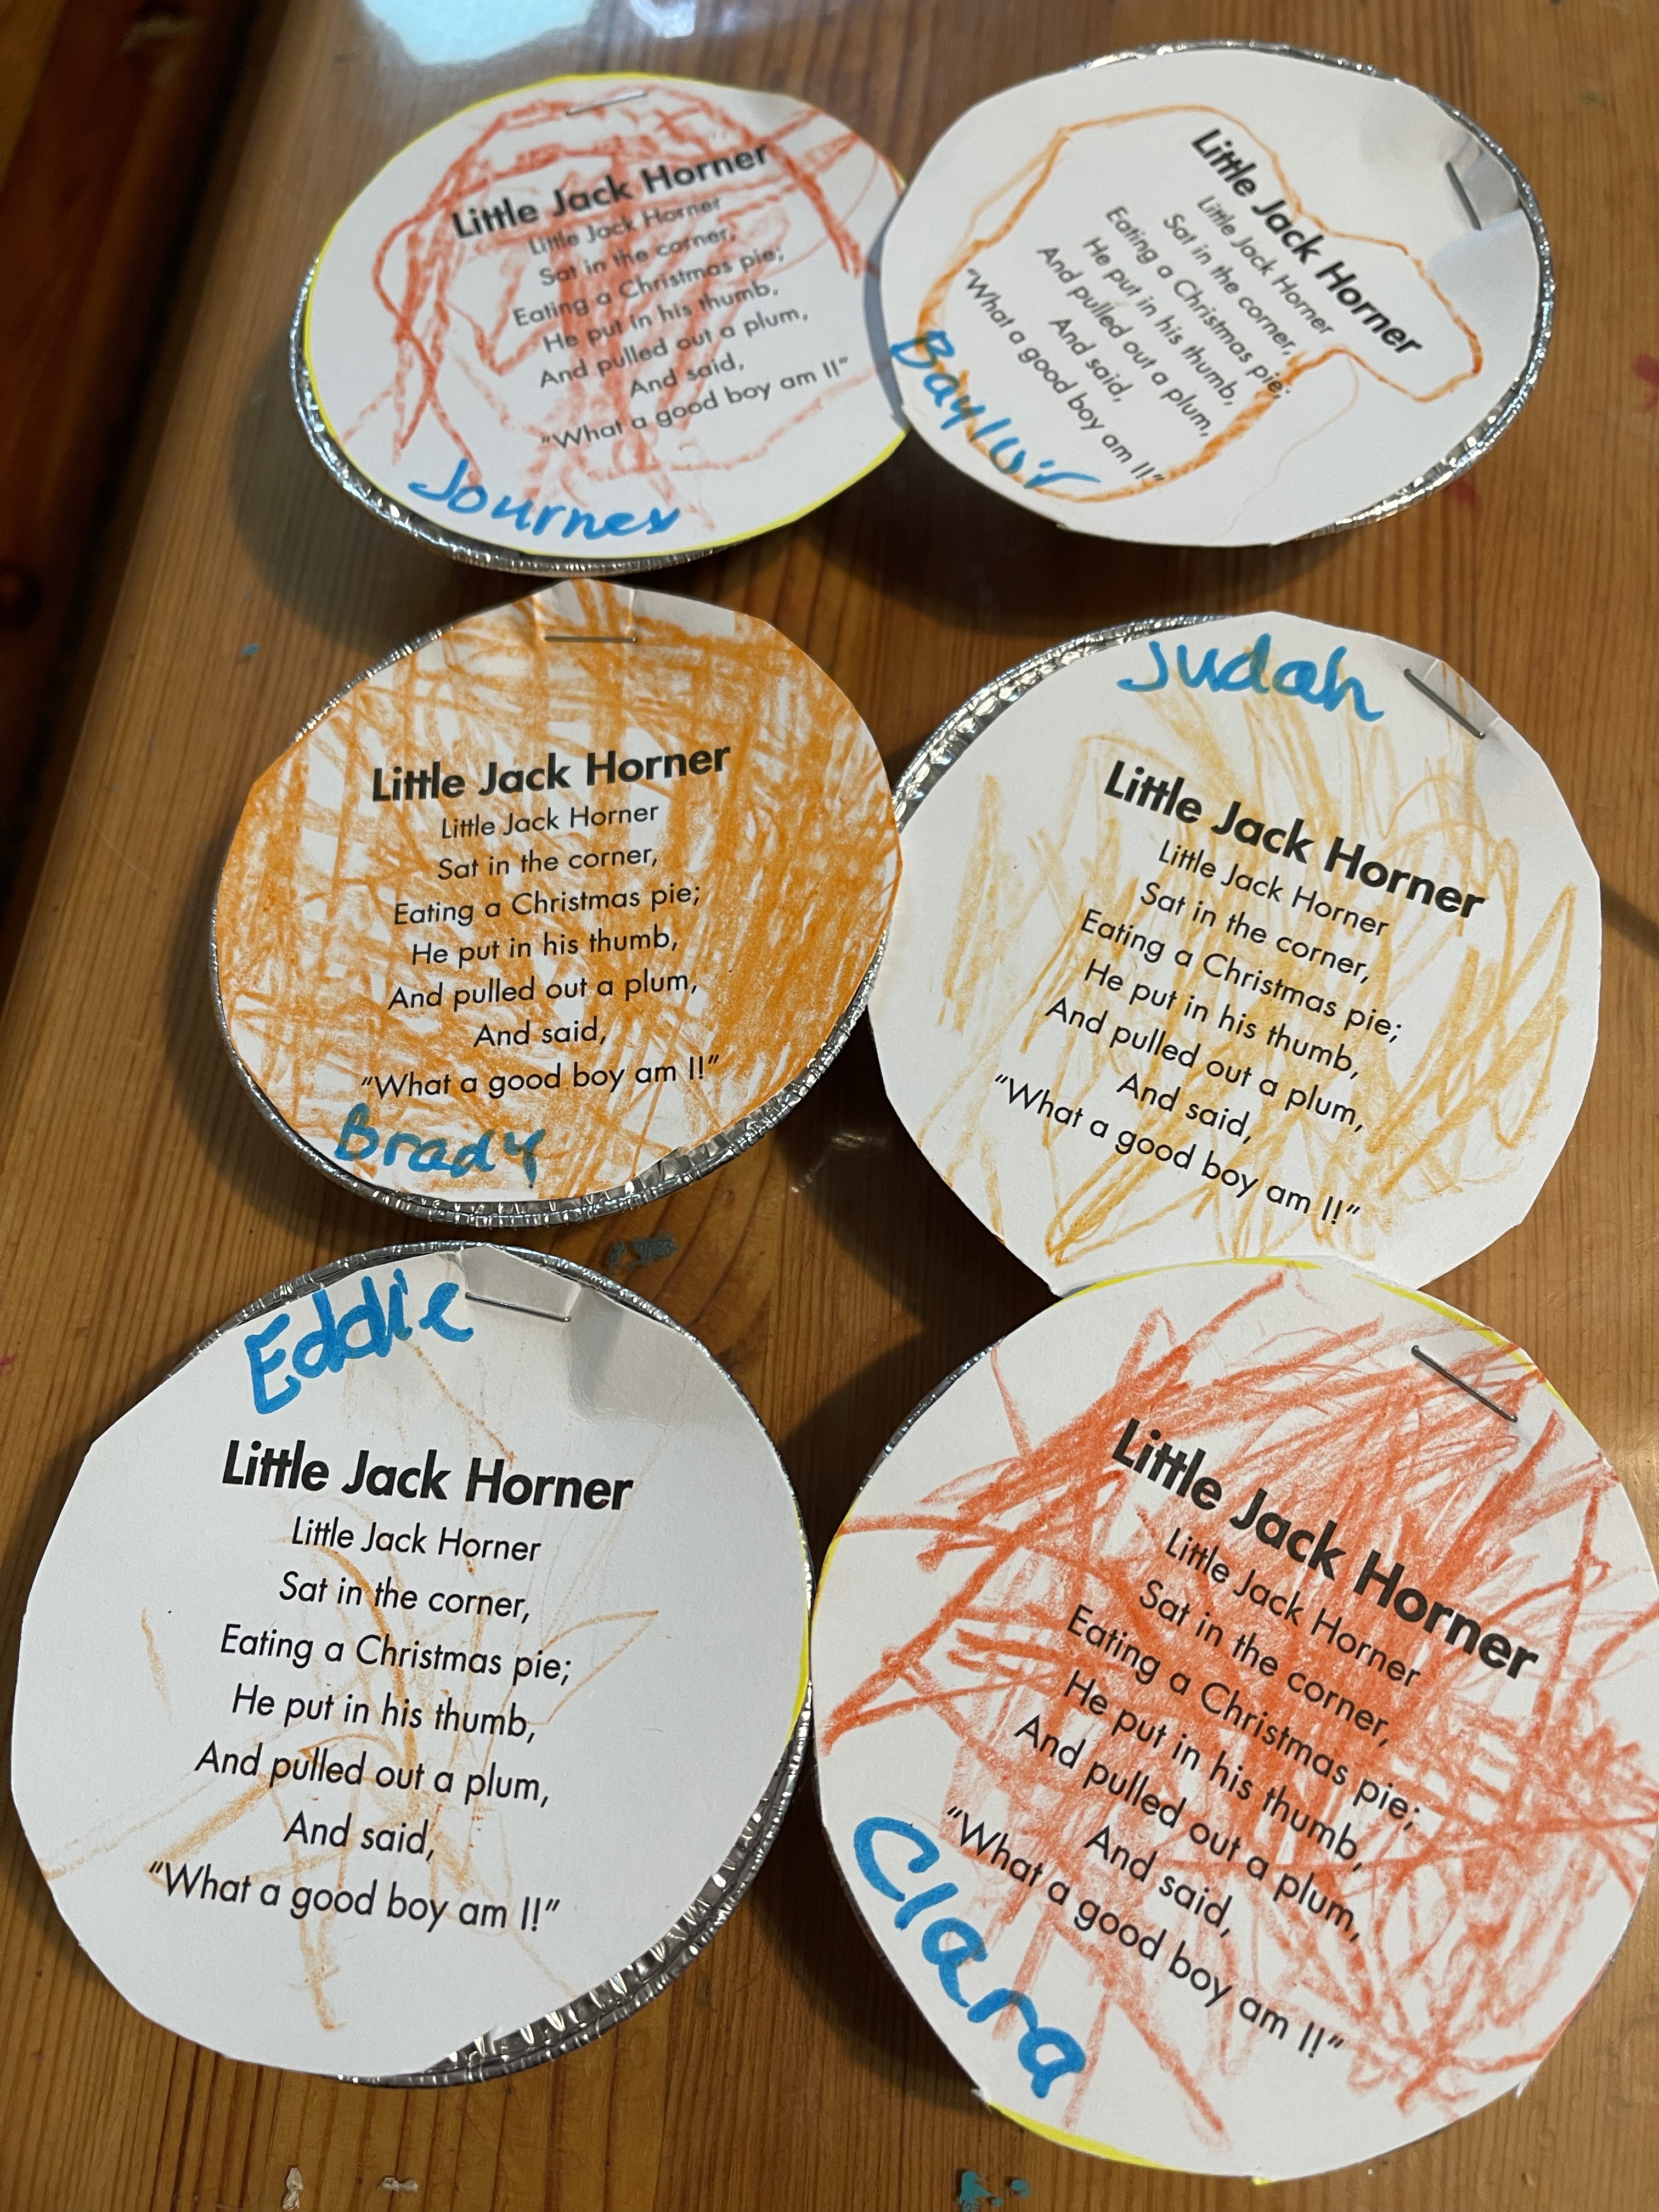 Little Jack Horner
Little Jack Horner
Sat in the corner,
Eating a Christmas pie;
He put in his thumb,
And pulled out a plum,
And said,
“What a good boy am I!”
Journey
Little Jack Horner
Little Jack Horner
Sat in the corner,
Eating a Christmas pie;
He put in his thumb,
And pulled out a plum,
And said,
“What a good boy am I!”
Little Jack Horner
Little Jack Horner
Sat in the corner,
Eating a Christmas pie;
He put in his thumb,
And pulled out a plum,
And said,
“What a good boy am I!”
Brady
Judah
Little Jack Horner
Little Jack Horner
Sat in the corner,
Eating a Christmas pie;
He put in his thumb,
And pulled out a plum,
And said,
“What a good boy am I!”
Eddie
Little Jack Horner
Little Jack Horner
Sat in the corner,
Eating a Christmas pie;
He put in his thumb,
And pulled out a plum,
And said,
“What a good boy am I!”
Little Jack Horner
Little Jack Horner
Sat in the corner,
Eating a Christmas pie;
He put in his thumb,
And pulled out a plum,
And said,
“What a good boy am I!”
Clara